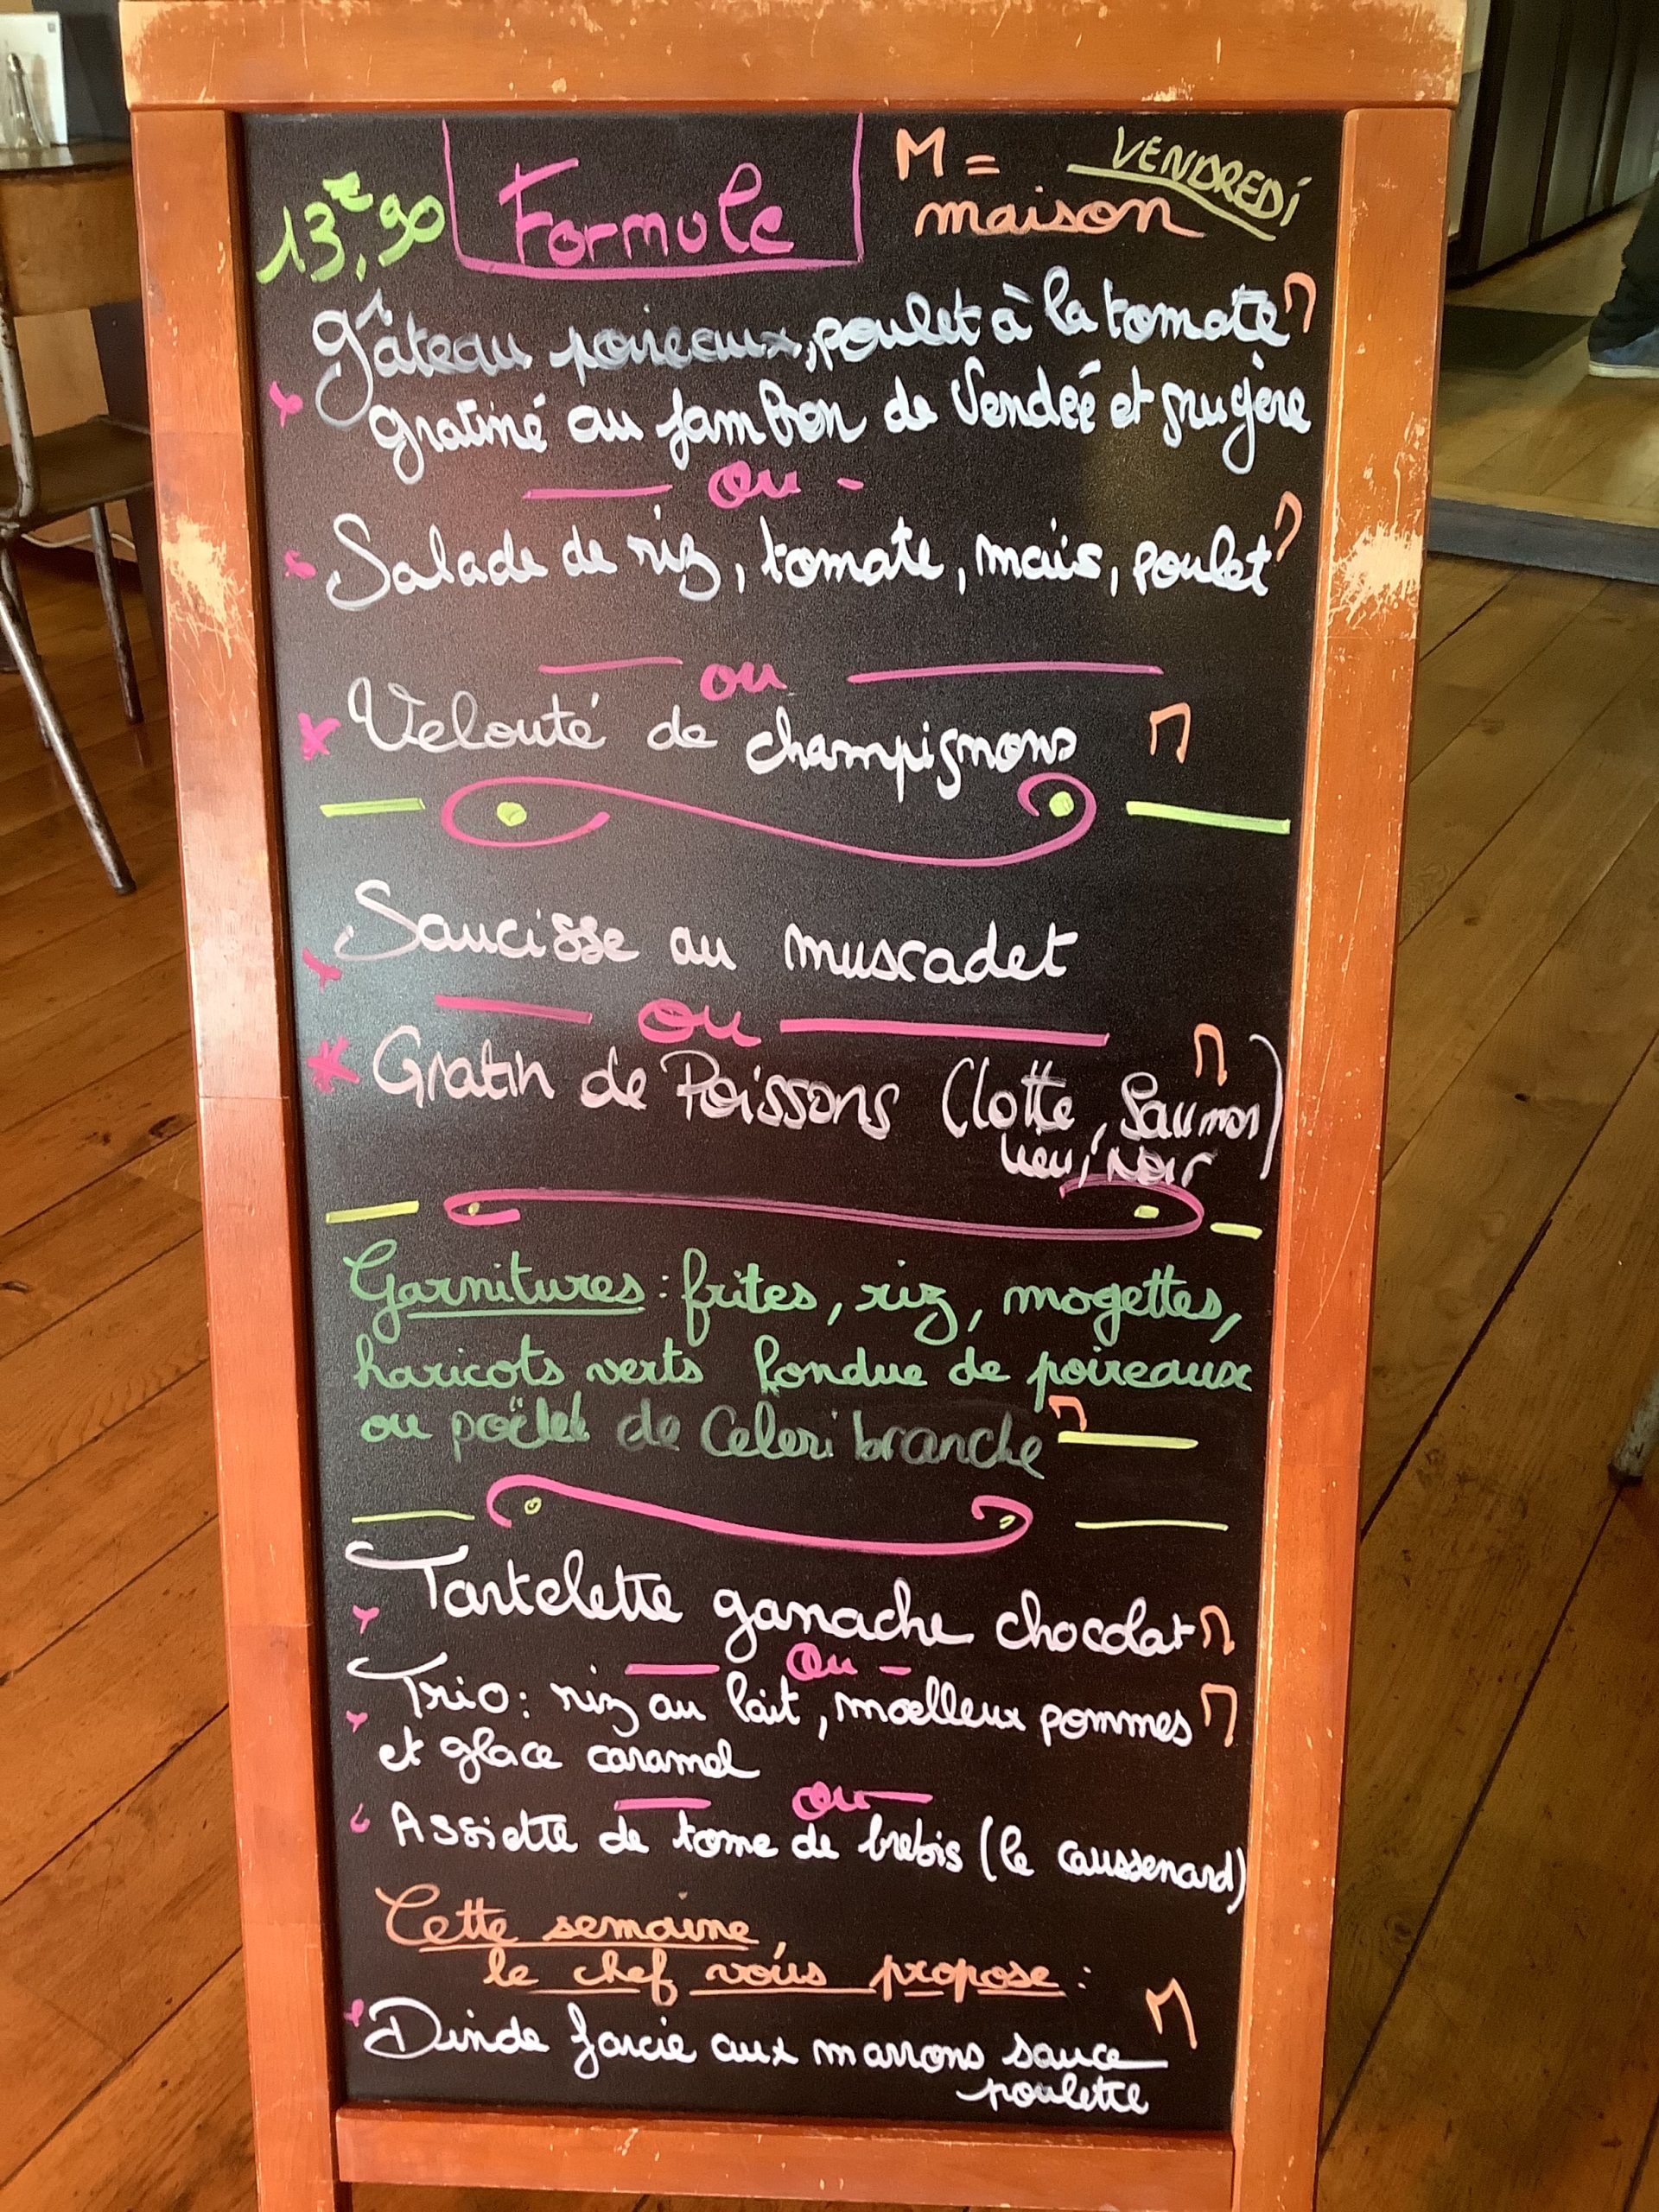 13€,90 Formule M = maison VENDREDi
Gâteau poireaux, poulet à la tomate M
gratiné au jambon de Vendée et gruyère
ou
Salade de riz, tomate, maïs, poulet M
ou
Velouté de champignons M
Saucisse au muscadet
ou
Gratin de Poissons (lotte, Saumon) M
lieu noir
Garnitures : frites, riz, mogettes,
haricots verts fondue de poireaux
ou de Celeri branche M
Tartelette ganache chocolat M
ou
Trio : riz au lait, moelleux pommes M
et glace caramel
ou
Assiette de tome de brebis (le caussenard)
Cette semaine,
le chef vous propose :
Dinde farcie aux marrons sauce M
poulette